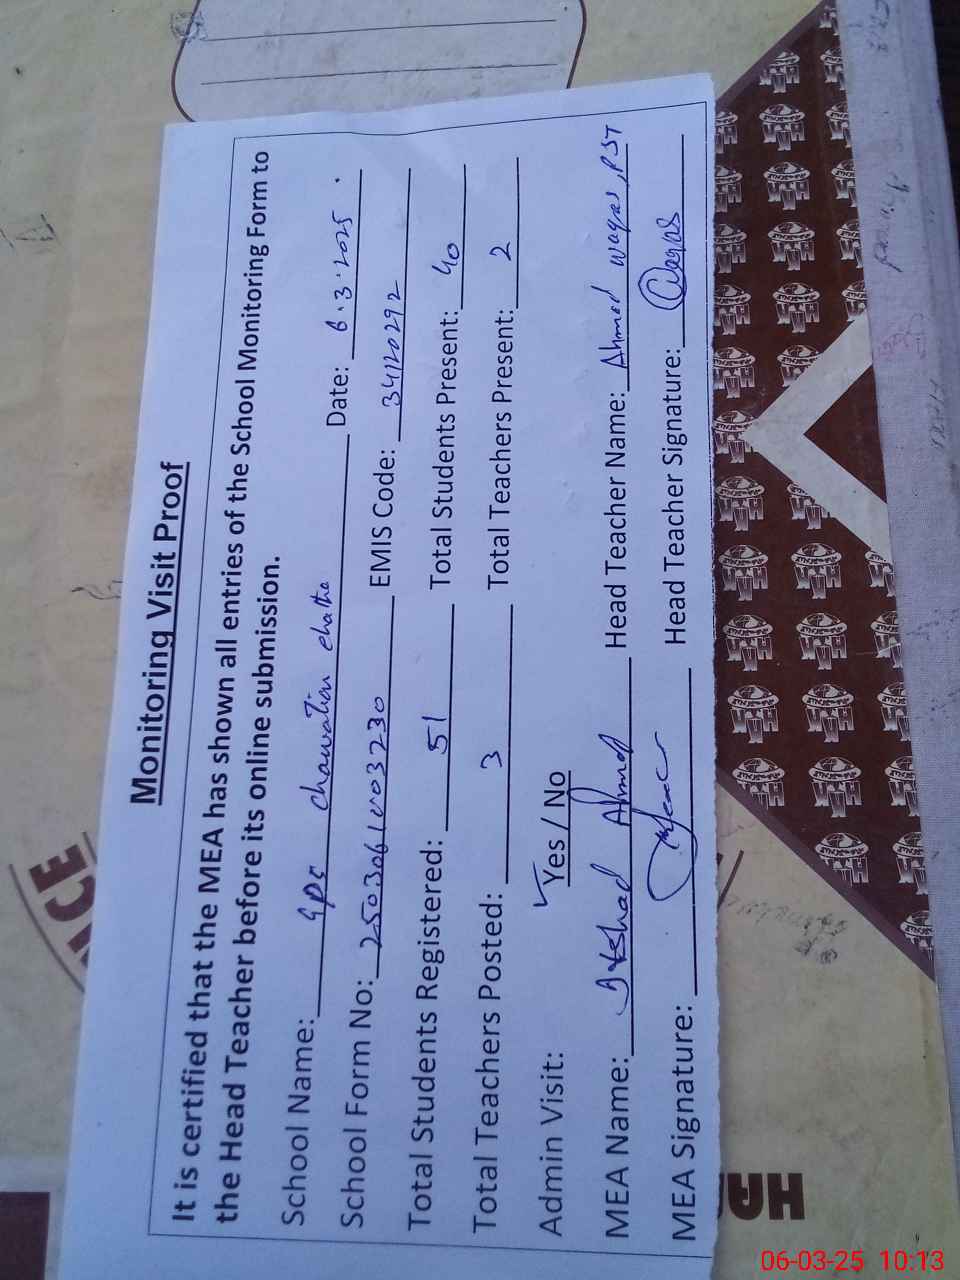 Monitoring Visit Proof
It is certified that the MEA has shown all entries of the School Monitoring Form to
the Head Teacher before its online submission.
School Name: GPS chawation chatha Date: 6.3.2025.
School Form No: 2503061003230 EMIS Code: 34120292
Total Students Registered: 51 Total Students Present: 40
Total Teachers Posted: 3 Total Teachers Present: 2
Admin Visit: Yes / No
MEA Name: Ahmed Head Teacher Name: Ahmed waqas, PST
MEA Signature: Head Teacher Signature: Waqas
06-03-25 10:13